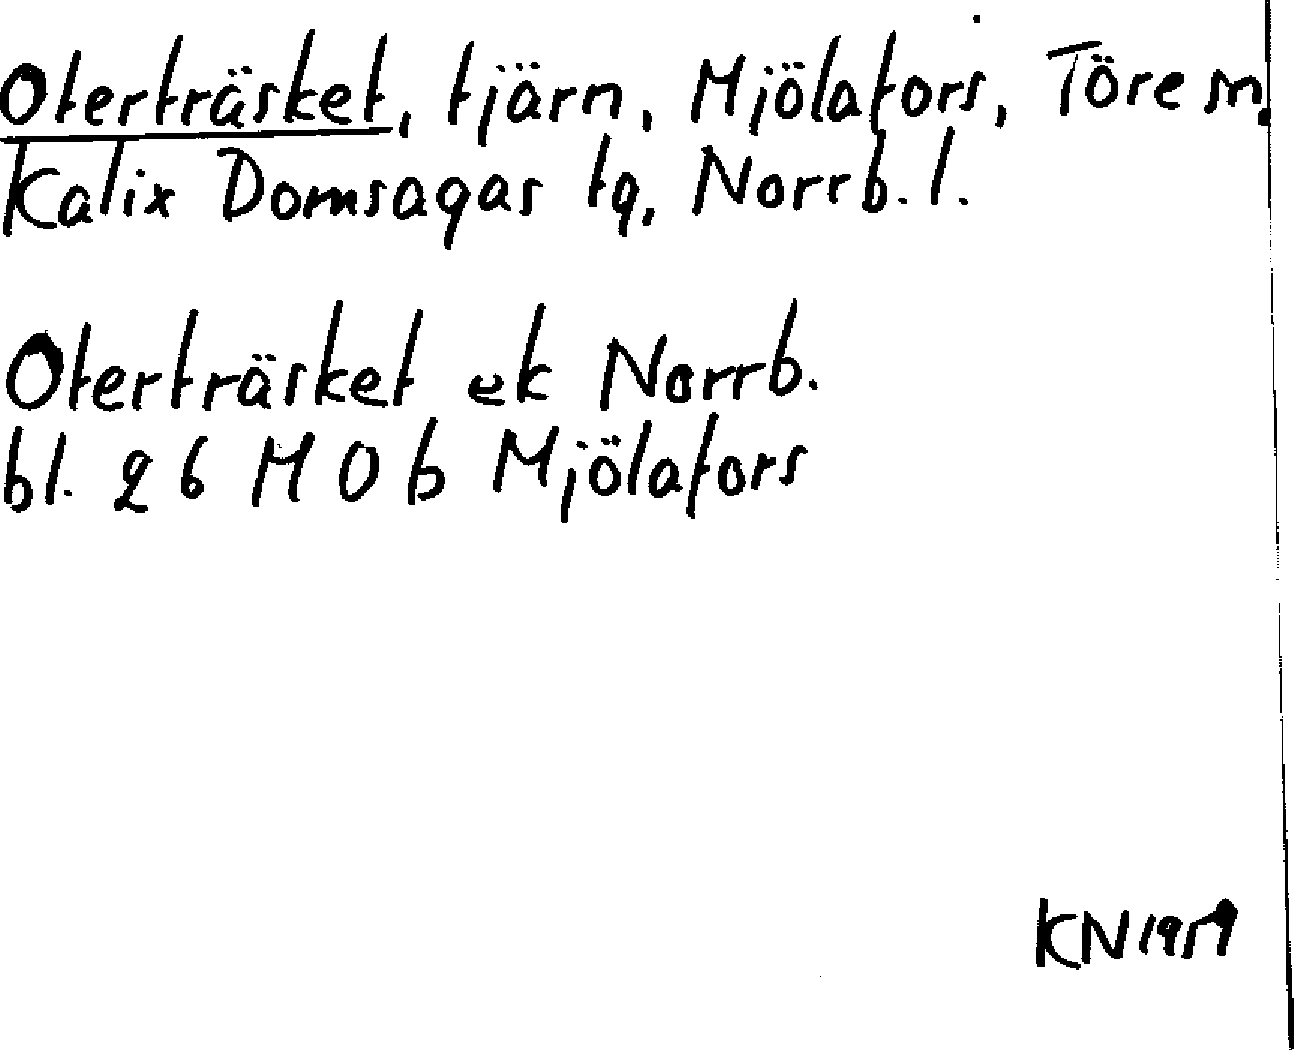 Oterträsket, tjärn, Mjölafors, Töre sn,
Kalix Domsagas tg, Norrb. l.
Oterträsket ek Norrb.
bl. 26 M O b Mjölafors
KN 1959